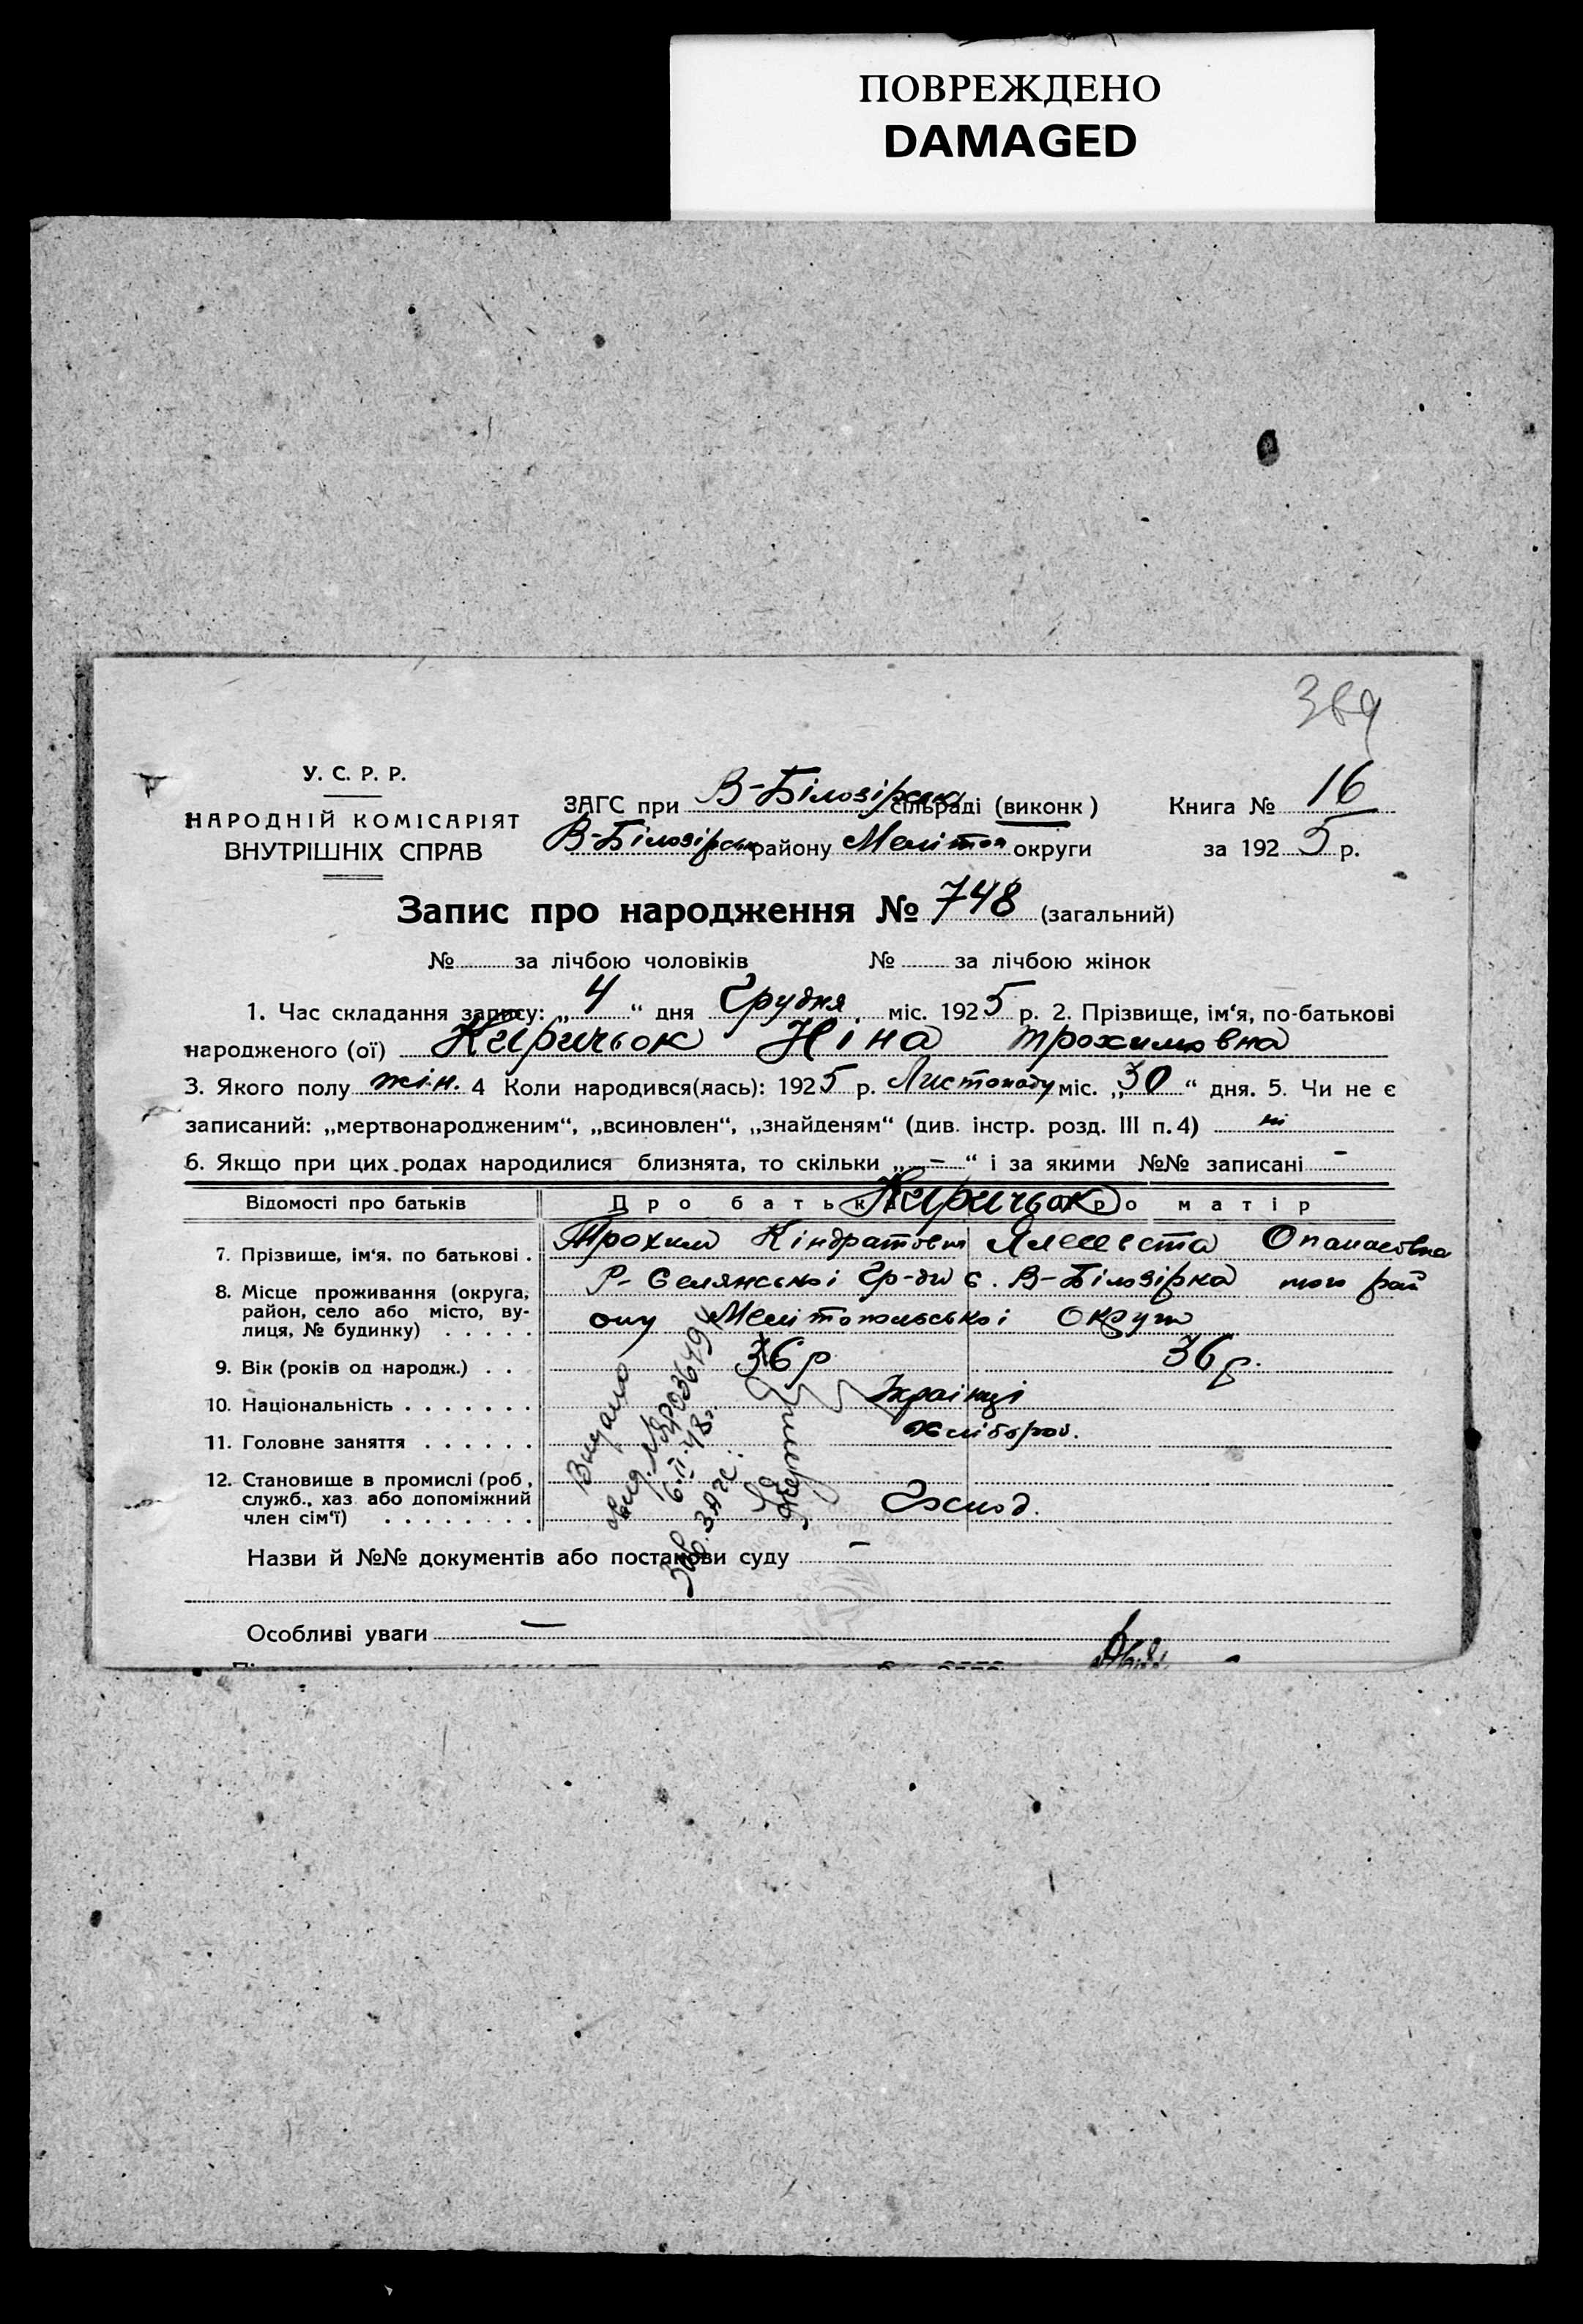 ПОВРЕЖДЕНО
DAMAGED
389
У. С. Р. Р.
НАРОДНІЙ КОМІСАРІЯТ
ВНУТРІШНІХ СПРАВ
ЗАГС при В-Білозірськ сільраді (виконк)
В-Білозірськ району Мелітоп округи
Книга № 16
за 1925 р.
Запис про народження № 748 (загальний)
№ за лічбою чоловіків № за лічбою жінок
1. Час складання запису: „4“ дня Грудня міс. 1925 р. 2. Прізвище, ім‘я, по-батькові
народженого (ої) Киричьок Ніна Трохимовна
3. Якого полу жін. 4 Коли народився(лась): 1925 р. Листопаду міс. „30“ дня. 5. Чи не є
записаний: „мертвонародженим“, „всиновлен“, „знайденям“ (див. інстр. розд. III п. 4) ні
6. Якщо при цих родах народилися близнята, то скільки „-“ і за якими №№ записані -
Відомості про батьків Про батьк Киричьок ро матір
7. Прізвище, ім‘я, по батькові . Трохим Кіндратович Опанасовна
8. Місце проживання (округа, район, село або місто, вулиця, № будинку) . . . . . Р- Селянської Гр-ди с. В-Білозірка того рай
ону Мелітопольської Округи
9. Вік (років од народж.) . . 36 р 36 р.
10. Національність . . . . . . . Українці
11. Головне заняття . . . . . . Хлібороб.
12. Становище в промислі (роб, служб., хаз або допоміжний член сім‘ї) . . . . . . . . Господ.
Видано
свид. №ЯР036494
6.II.48г.
Зав. ЗАГС:
Назви й №№ документів або постанови суду -
Особливі уваги —